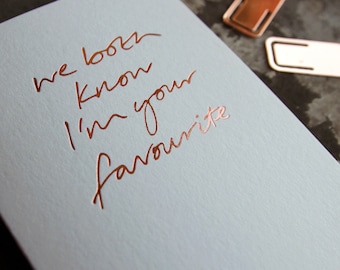 we both
know
I'm your
favourite